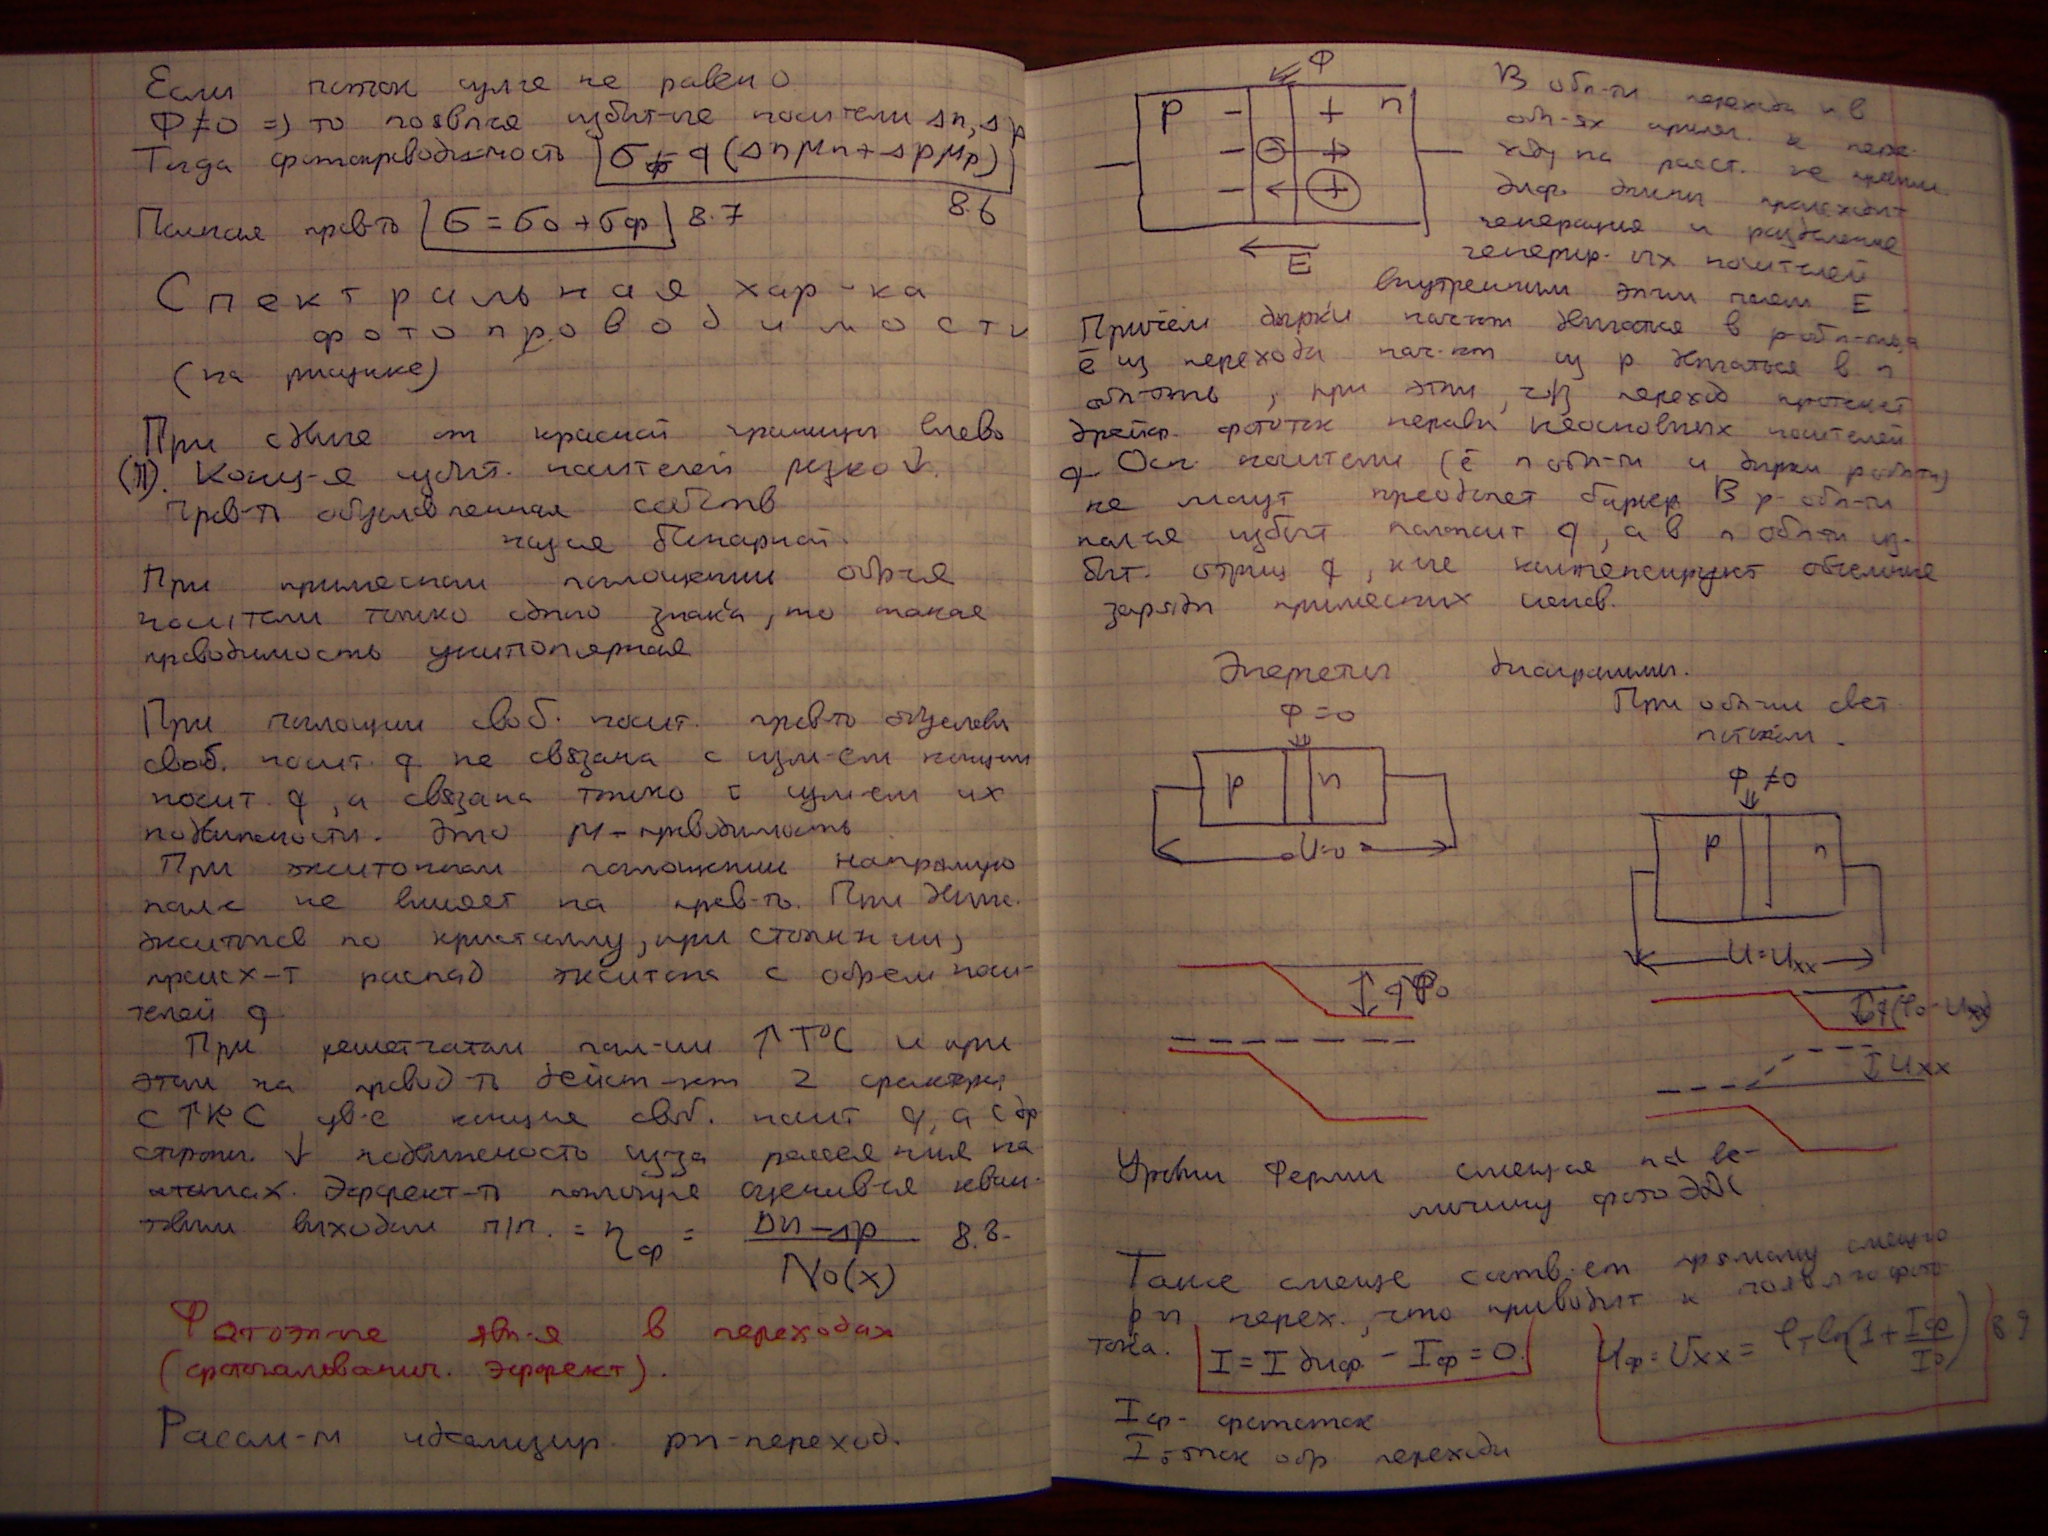 Если поток изл-е не равен 0
Ф≠0 => то появл-ся избыт-ые носители Δn, Δp
Тогда фотопроводимость σф = q(Δnμn + Δpμp)
8.6
Полная пров-ть σ = σ0 + σф 8.7
Спектральная хар-ка
фотопроводимости
(на рисунке)
При сдвиге от красной границы влево
Конц-я избыт. носителей резко ↓.
Пров-ть обусловленная собств
биполярной.
При примесном поглощении обр-ся
носители только одного знака, то такая
проводимость униполярная
При поглощии своб. носит. пров-ть обуслов
своб. носит q не связана с изм-ем концент
носит q, а связана только с изм-ем их
подвижности. Это μ-проводимость
При экситонном поглощении напрямую
не влияет на пров-ть. При движ.
экситонов по кристаллу, при столкн-ии,
происх-т распад экситона с обр-ем носи-
телей q
При решетчатом погл-ии ↑T°C и при
этом на провод-ть действ-ют 2 фактора
своб. носит q, а с др
стороны ↓ подвижность из за рассеяния на
атомах. Эффект-ть оценив-ся кван-
товым выходом п/п. = ηф = Δn-Δp / N0(x) 8.8.
Фотоэл-ие явл-я в переходах
(фотогальванич. эффект).
Рассм-м идеализир. pn-переход.
Ф
p - + n
- - +
- +
E
В обл-ти перехода и в
обл-ях прилег. к пере-
ходу на расст. не
диф. длины происходит
генерация и разделение
генерир-ых носителей
внутренним эл-им полем E
Причём дырки начнут двигаться в p-обл-ть, а
ē из перехода нач-ют из p двигаться в n
обл-ть, при этом, ч/з переход протекает
дрейф. фототок неосновных носителей
q. Осн. носители (ē n обл-ти и дырки p обл-ти)
не могут барьер В p-обл-ти
избыт положит q, а в n обл-ти из-
быт. отриц q, к-ые компенсируют объемные
заряды примесных ионов.
Энергетич диаграммы.
Ф=0
При обл-ии свет
потоком.
p n
U=0
Ф≠0
p n
U=Uxx
qφ0
q(φ0-Uxx)
Uxx
Уровни Ферми смещ-ся на ве-
личину фото ЭДС
Такое смеще соотв-ет прямому смещ-ю
pn перех., что приводит к появл-ю фото
тока. I = I диф - Iф = 0.
Uф = Uxx = φт ln(1 + Iф/I0) 8.9
Iф - фототок
I0 - ток обр. перехода